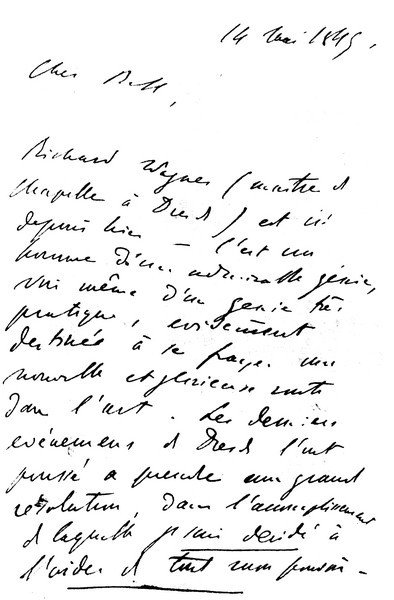 14 mai 1849,
Cher Bell,
Richard Wagner (maitre de
chapelle à Dresde) est ici
depuis hier – C'est un
homme d'un admirable génie,
voire même d'un genie très
pratique, evidemment
destiné à se frayer une
nouvelle et glorieuse route
dans l'art. Les derniers
evénemens de Dresde l'ont
poussé a prendre une grande
resolution, dans l'accomplissement
de laquelle je suis decidé à
l'aider de tout mon pouvoir –